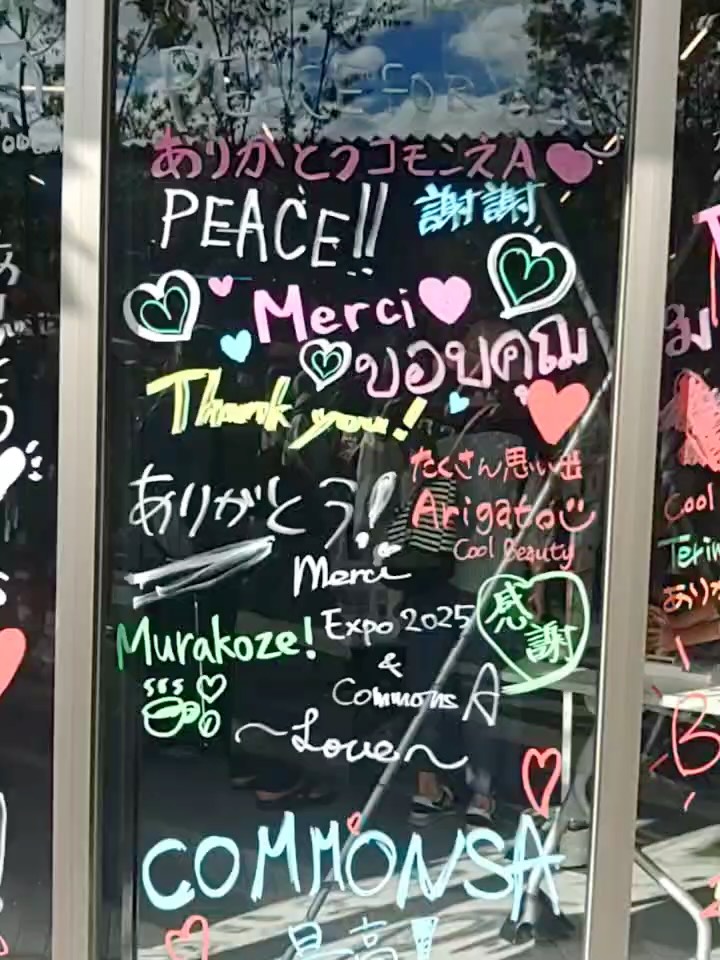 PEACE FOR
ありがとうコモンズA
PEACE!!
謝謝
Merci
ขอบคุณ
Thank you!
たくさん思い出
ありがとう!
Arigato
Cool Beauty
Merci
Murakoze!
Expo 2025
&
Commons A
感謝
~Love~
COMMONSA
最高!
Cool
Terim
ありが